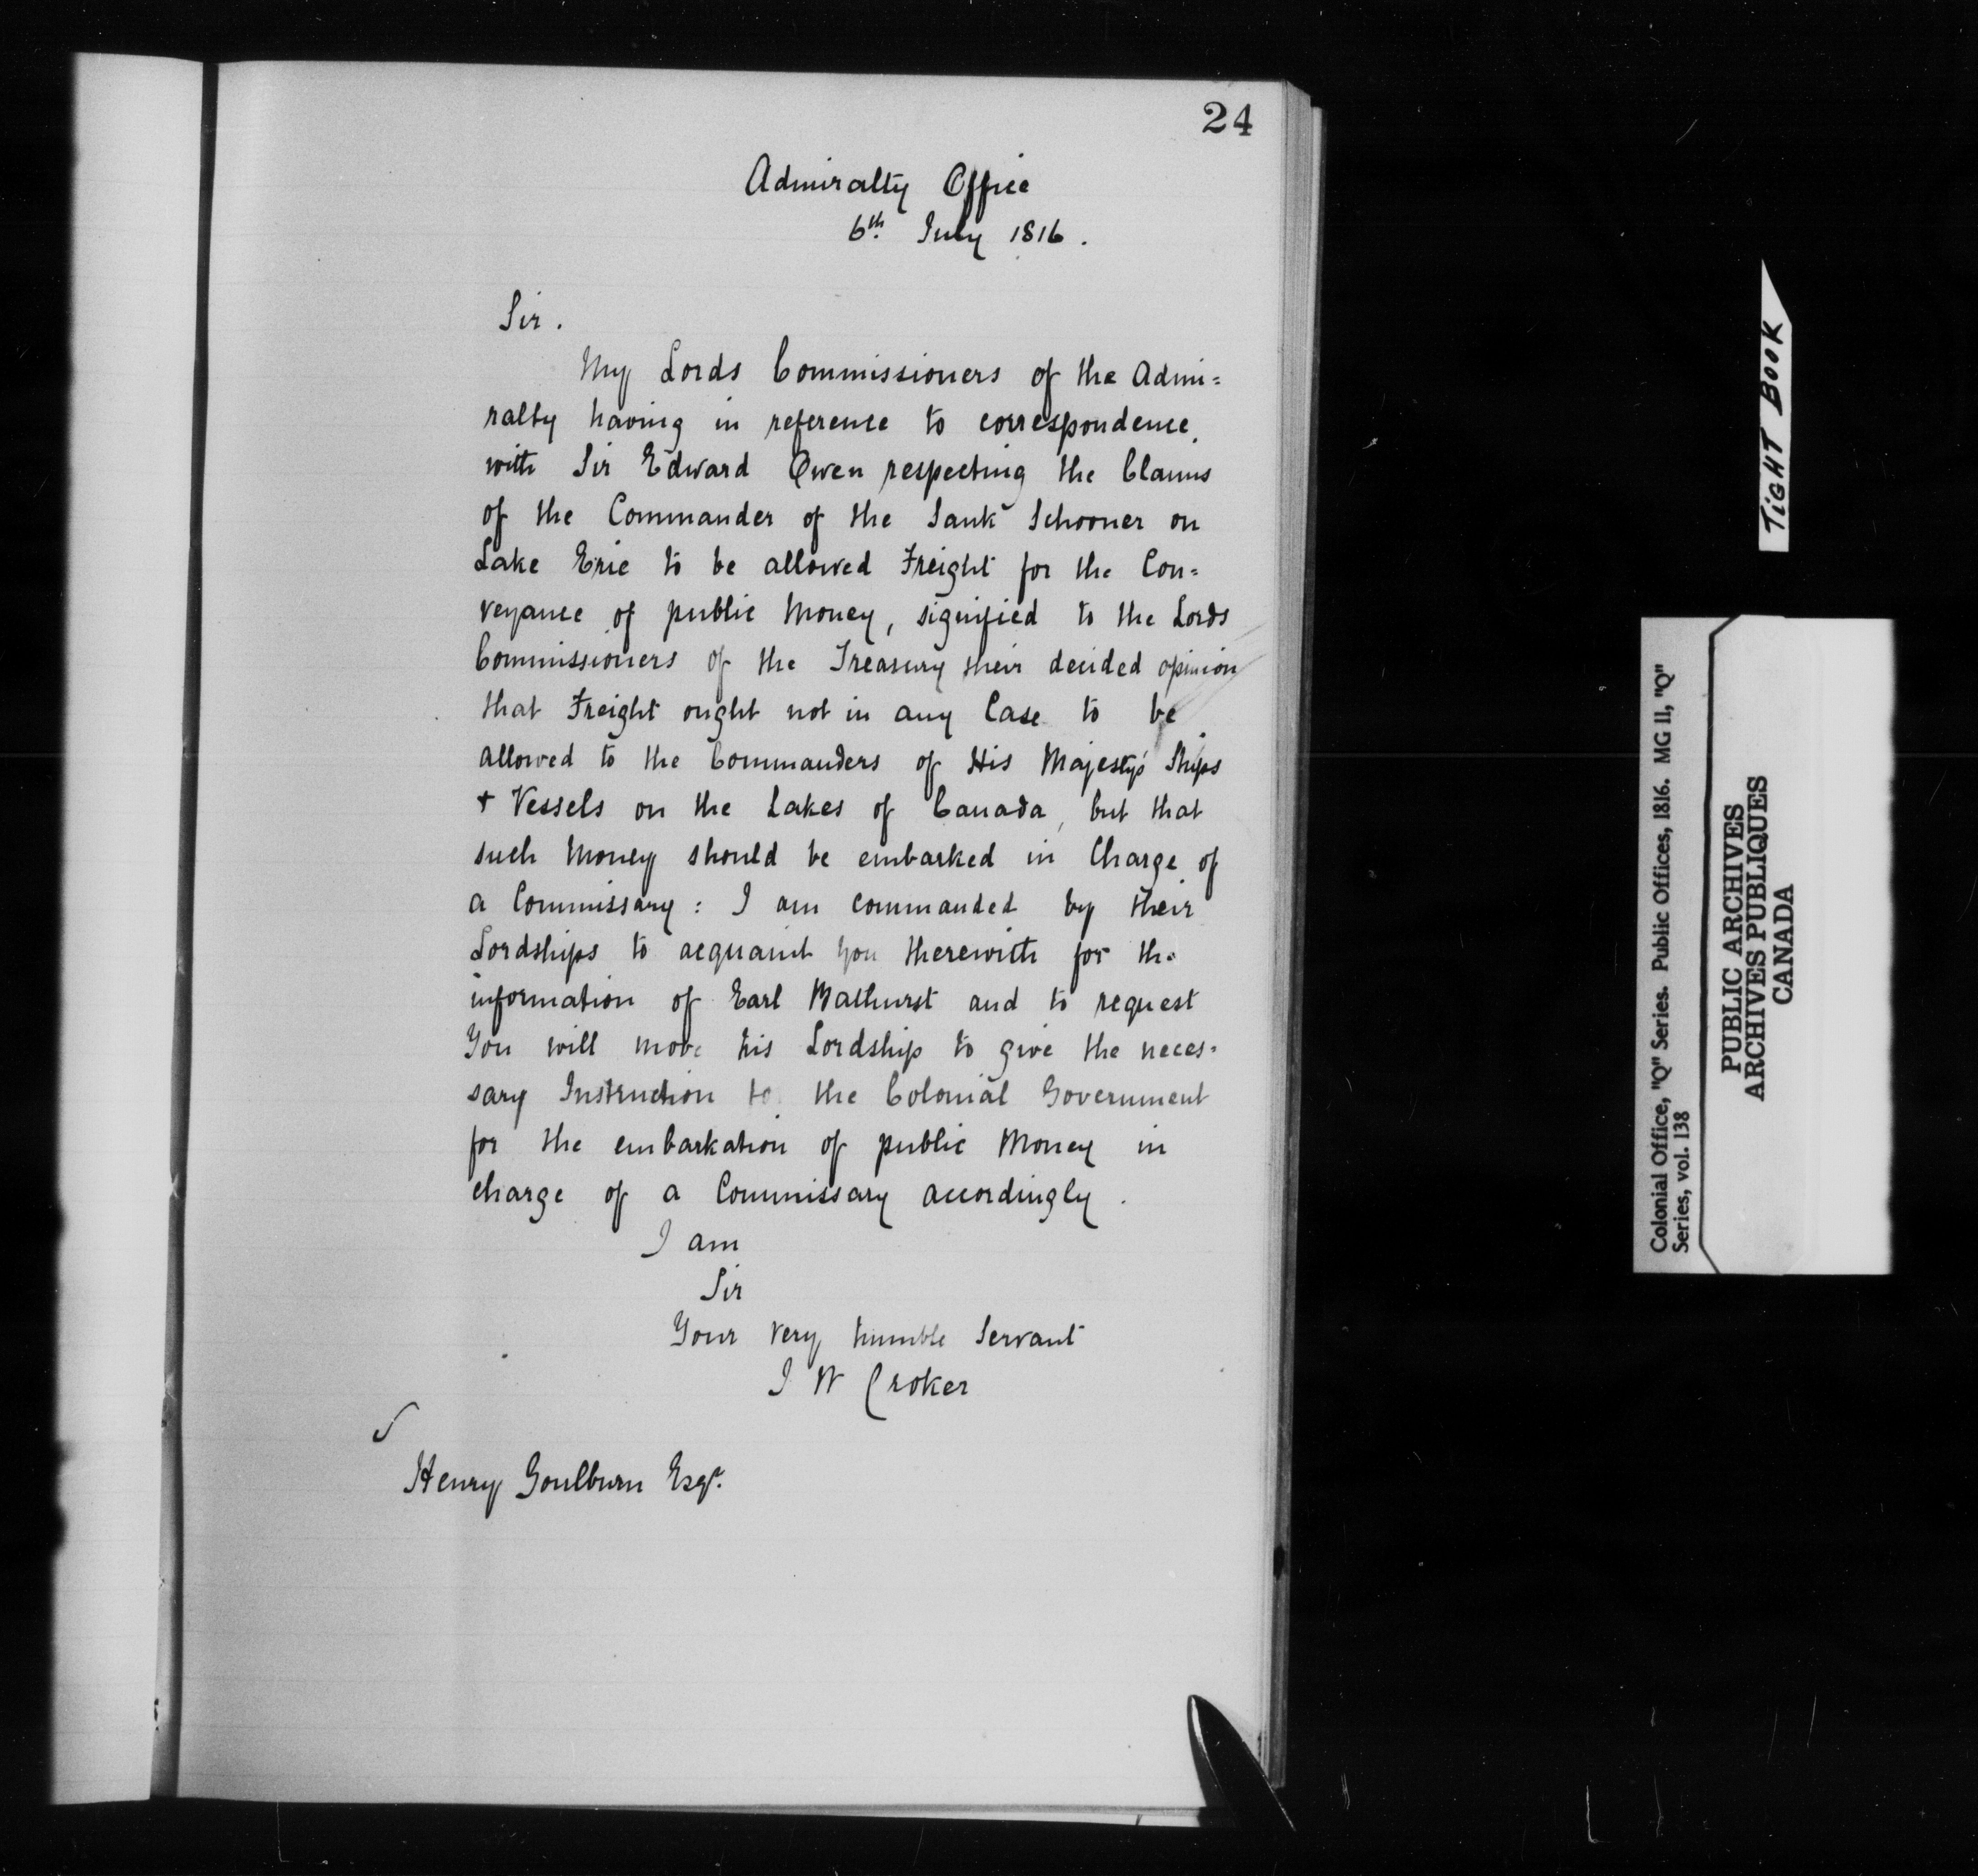 24
Admiralty Office
6th July 1816.
Sir.
My Lords Commissioners of the Admi=
ralty having in reference to correspondence
with Sir Edward Owen respecting the Claims
of the Commander of the Sauk Schooner on
Lake Erie to be allowed Freight for the Con=
veyance of public Money, signified to the Lords
Commissioners of the Treasury their decided opinion
that Freight ought not in any Case to be
allowed to the Commanders of His Majesty's Ships
+ Vessels on the Lakes of Canada, but that
such Money should be embarked in Charge of
a Commissary: I am commanded by their
Lordships to acquaint you therewith for the
information of Earl Bathurst and to request
You will move his Lordship to give the neces=
sary Instruction to the Colonial Government
for the embarkation of public Money in
charge of a Commissary accordingly.
I am
Sir
Your very humble Servant
J W Croker
Henry Goulburn Esqr.
TIGHT BOOK
Colonial Office, "Q" Series. Public Offices, 1816. MG 11, "Q"
Series, vol. 138
PUBLIC ARCHIVES
ARCHIVES PUBLIQUES
CANADA